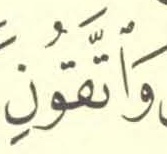 وَٱتَّقُونِ